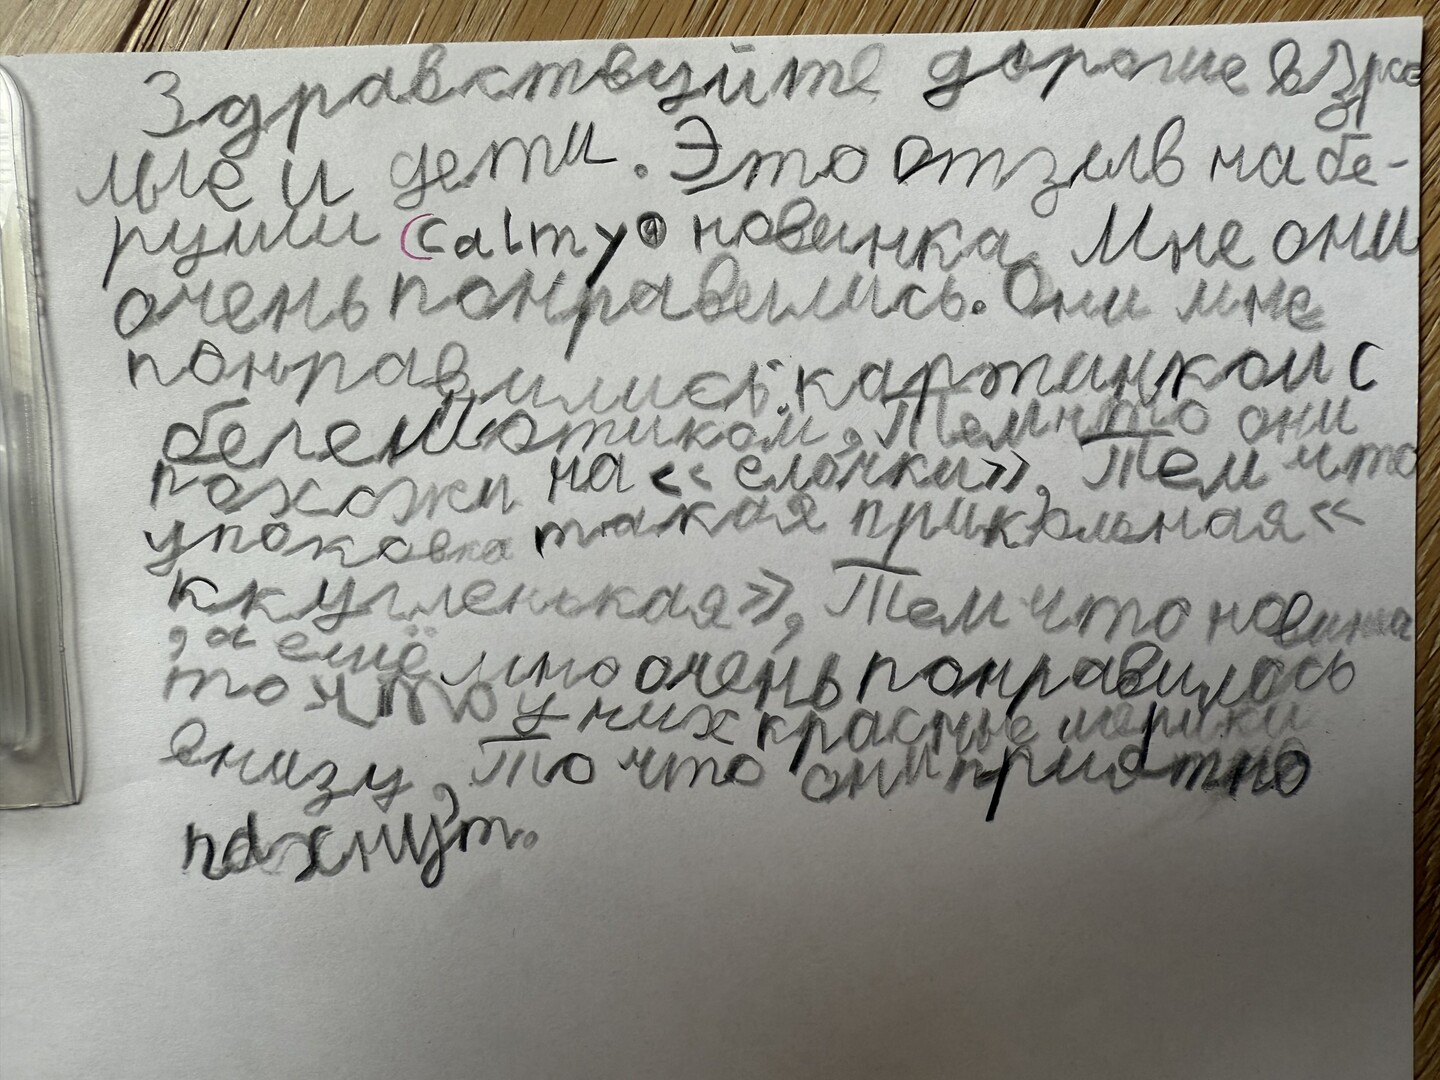 Здравствуйте дорогие взрос
лые и дети. Это отзыв на бе-
руши Calmy новинка. Мне они
очень понравились. Они мне
понравились картинкой с
бегемотиком, Тем что они
похожи на «елочки», Тем что
упоковка такая прикольная «
ккугленькая», Тем что новинка
, а ещё мно очень понравилось
то что у них красные шарики
внизу, То что они приятно
пахнут.